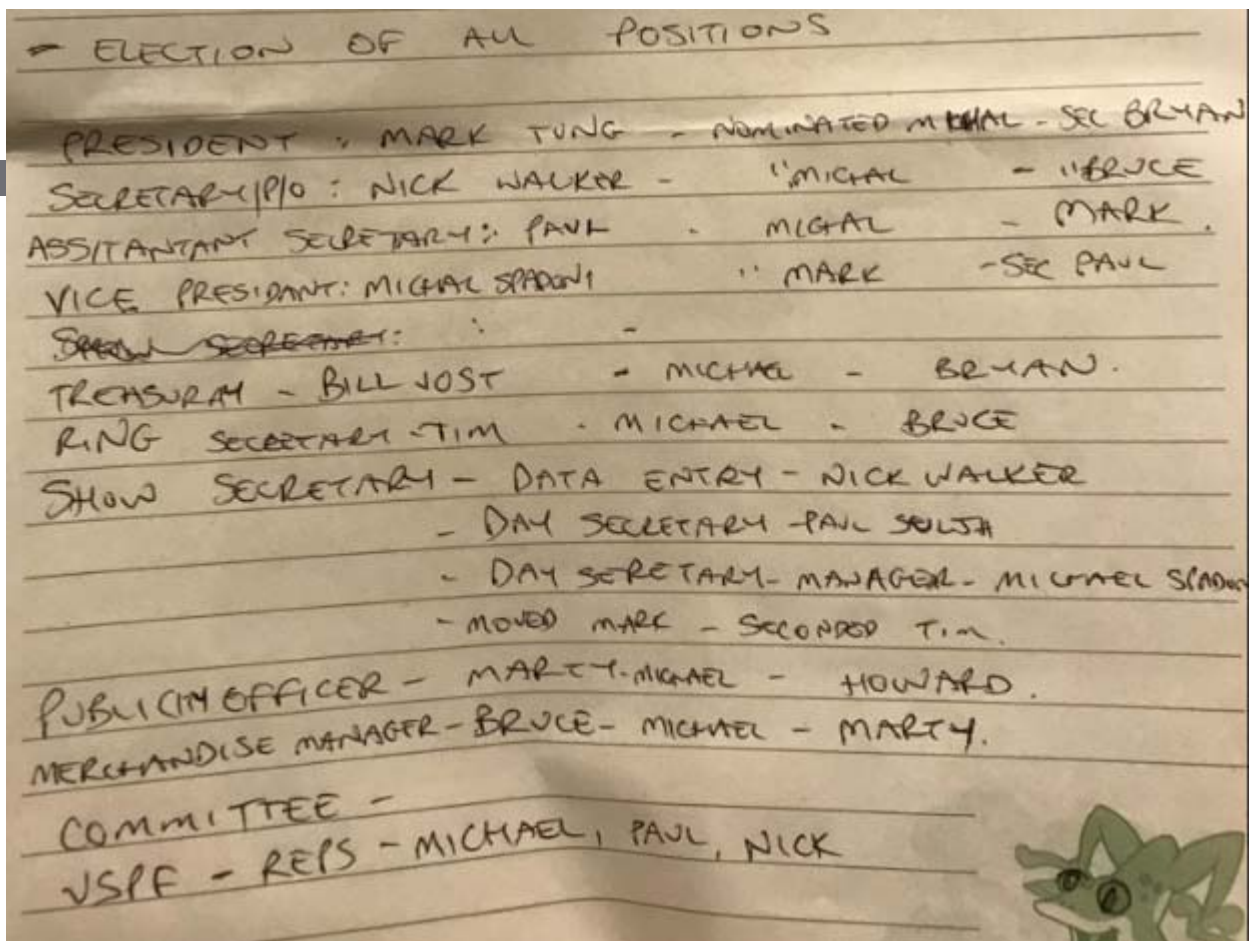 - ELECTION OF ALL POSITIONS
PRESIDENT : MARK TUNG - NOMINATED MICHAL - SEC BRYAN
SECRETARY/P/O : NICK WALKER - "MICHAL - "BRUCE
ASSITANTANT SECRETARY: PAUL - MICHAL - MARK.
VICE PRESIDANT: MICHAL SPADONI " MARK - SEC PAUL
SECRETARY: : -
TREASURAY - BILL JOST - MICHAEL - BRYAN.
RING SECRETARY - TIM - MICHAEL - BRUCE
SHOW SECRETARY - DATA ENTRY - NICK WALKER
- DAY SECRETARY - PAUL
- DAY SERETARY - MANAGER - MICHAEL SPADON
- MOVED MARK - SECONDED TIM.
PUBLICITY OFFICER - MARTY - MICHAEL - HOWARD.
MERCHANDISE MANAGER - BRUCE - MICHAEL - MARTY.
COMMITTEE -
VSPF - REPS - MICHAEL, PAUL, NICK